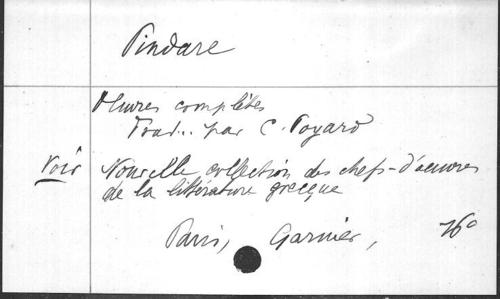 Pindare
Œuvres complètes
Trad.. par C. Poyard
Voir Nouvelle collection des chefs-d'œuvres
de la littérature grecque
Paris, Garnier, 16°